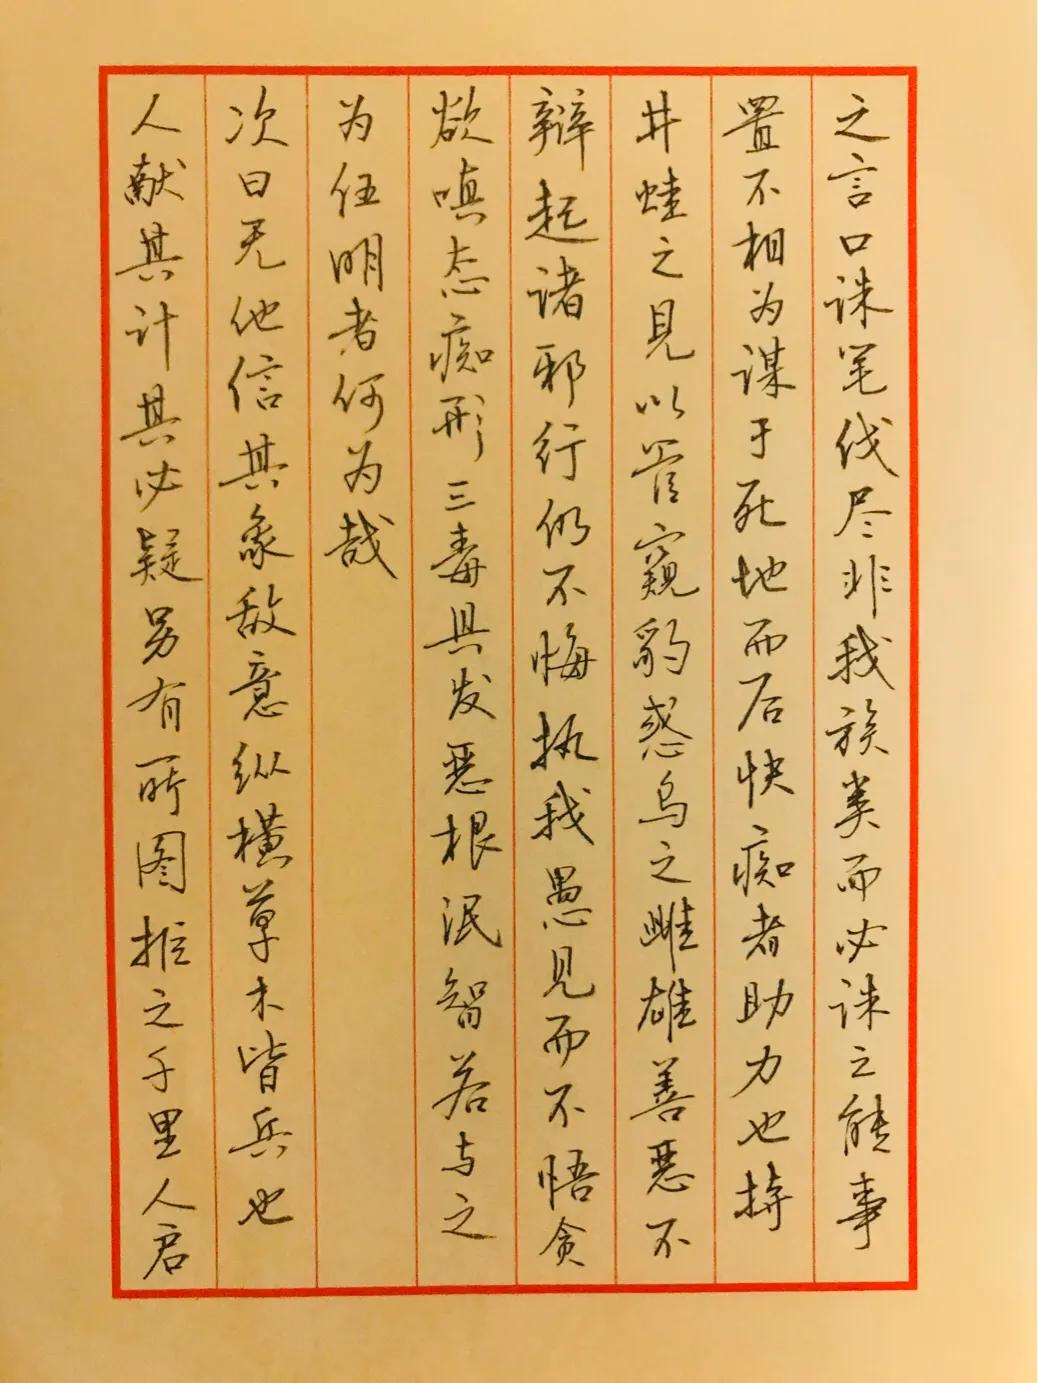 之言口诛笔伐尽非我族类而必诛之能事
置不相为谋于死地而后快痴者助力也持
井蛙之见以管窥豹惑乌之雌雄善恶不
辩起诸邪行仍不悔执我愚见而不悟贪
欲嗔态痴形三毒具发恶根泯智若与之
为伍明者何为哉
次日无他信其象敌意纵横草木皆兵也
人献其计其必疑另有所图拒之千里人君